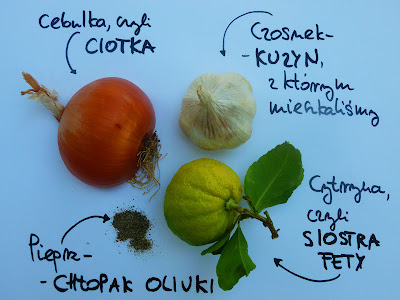 Cebulka, czyli
CIOTKA
Czosnek-
-KUZYN,
z którym
mieszkaliśmy
Cytryna,
czyli
SIOSTRA
FETY
Pieprz-
-CHŁOPAK OLIWKI